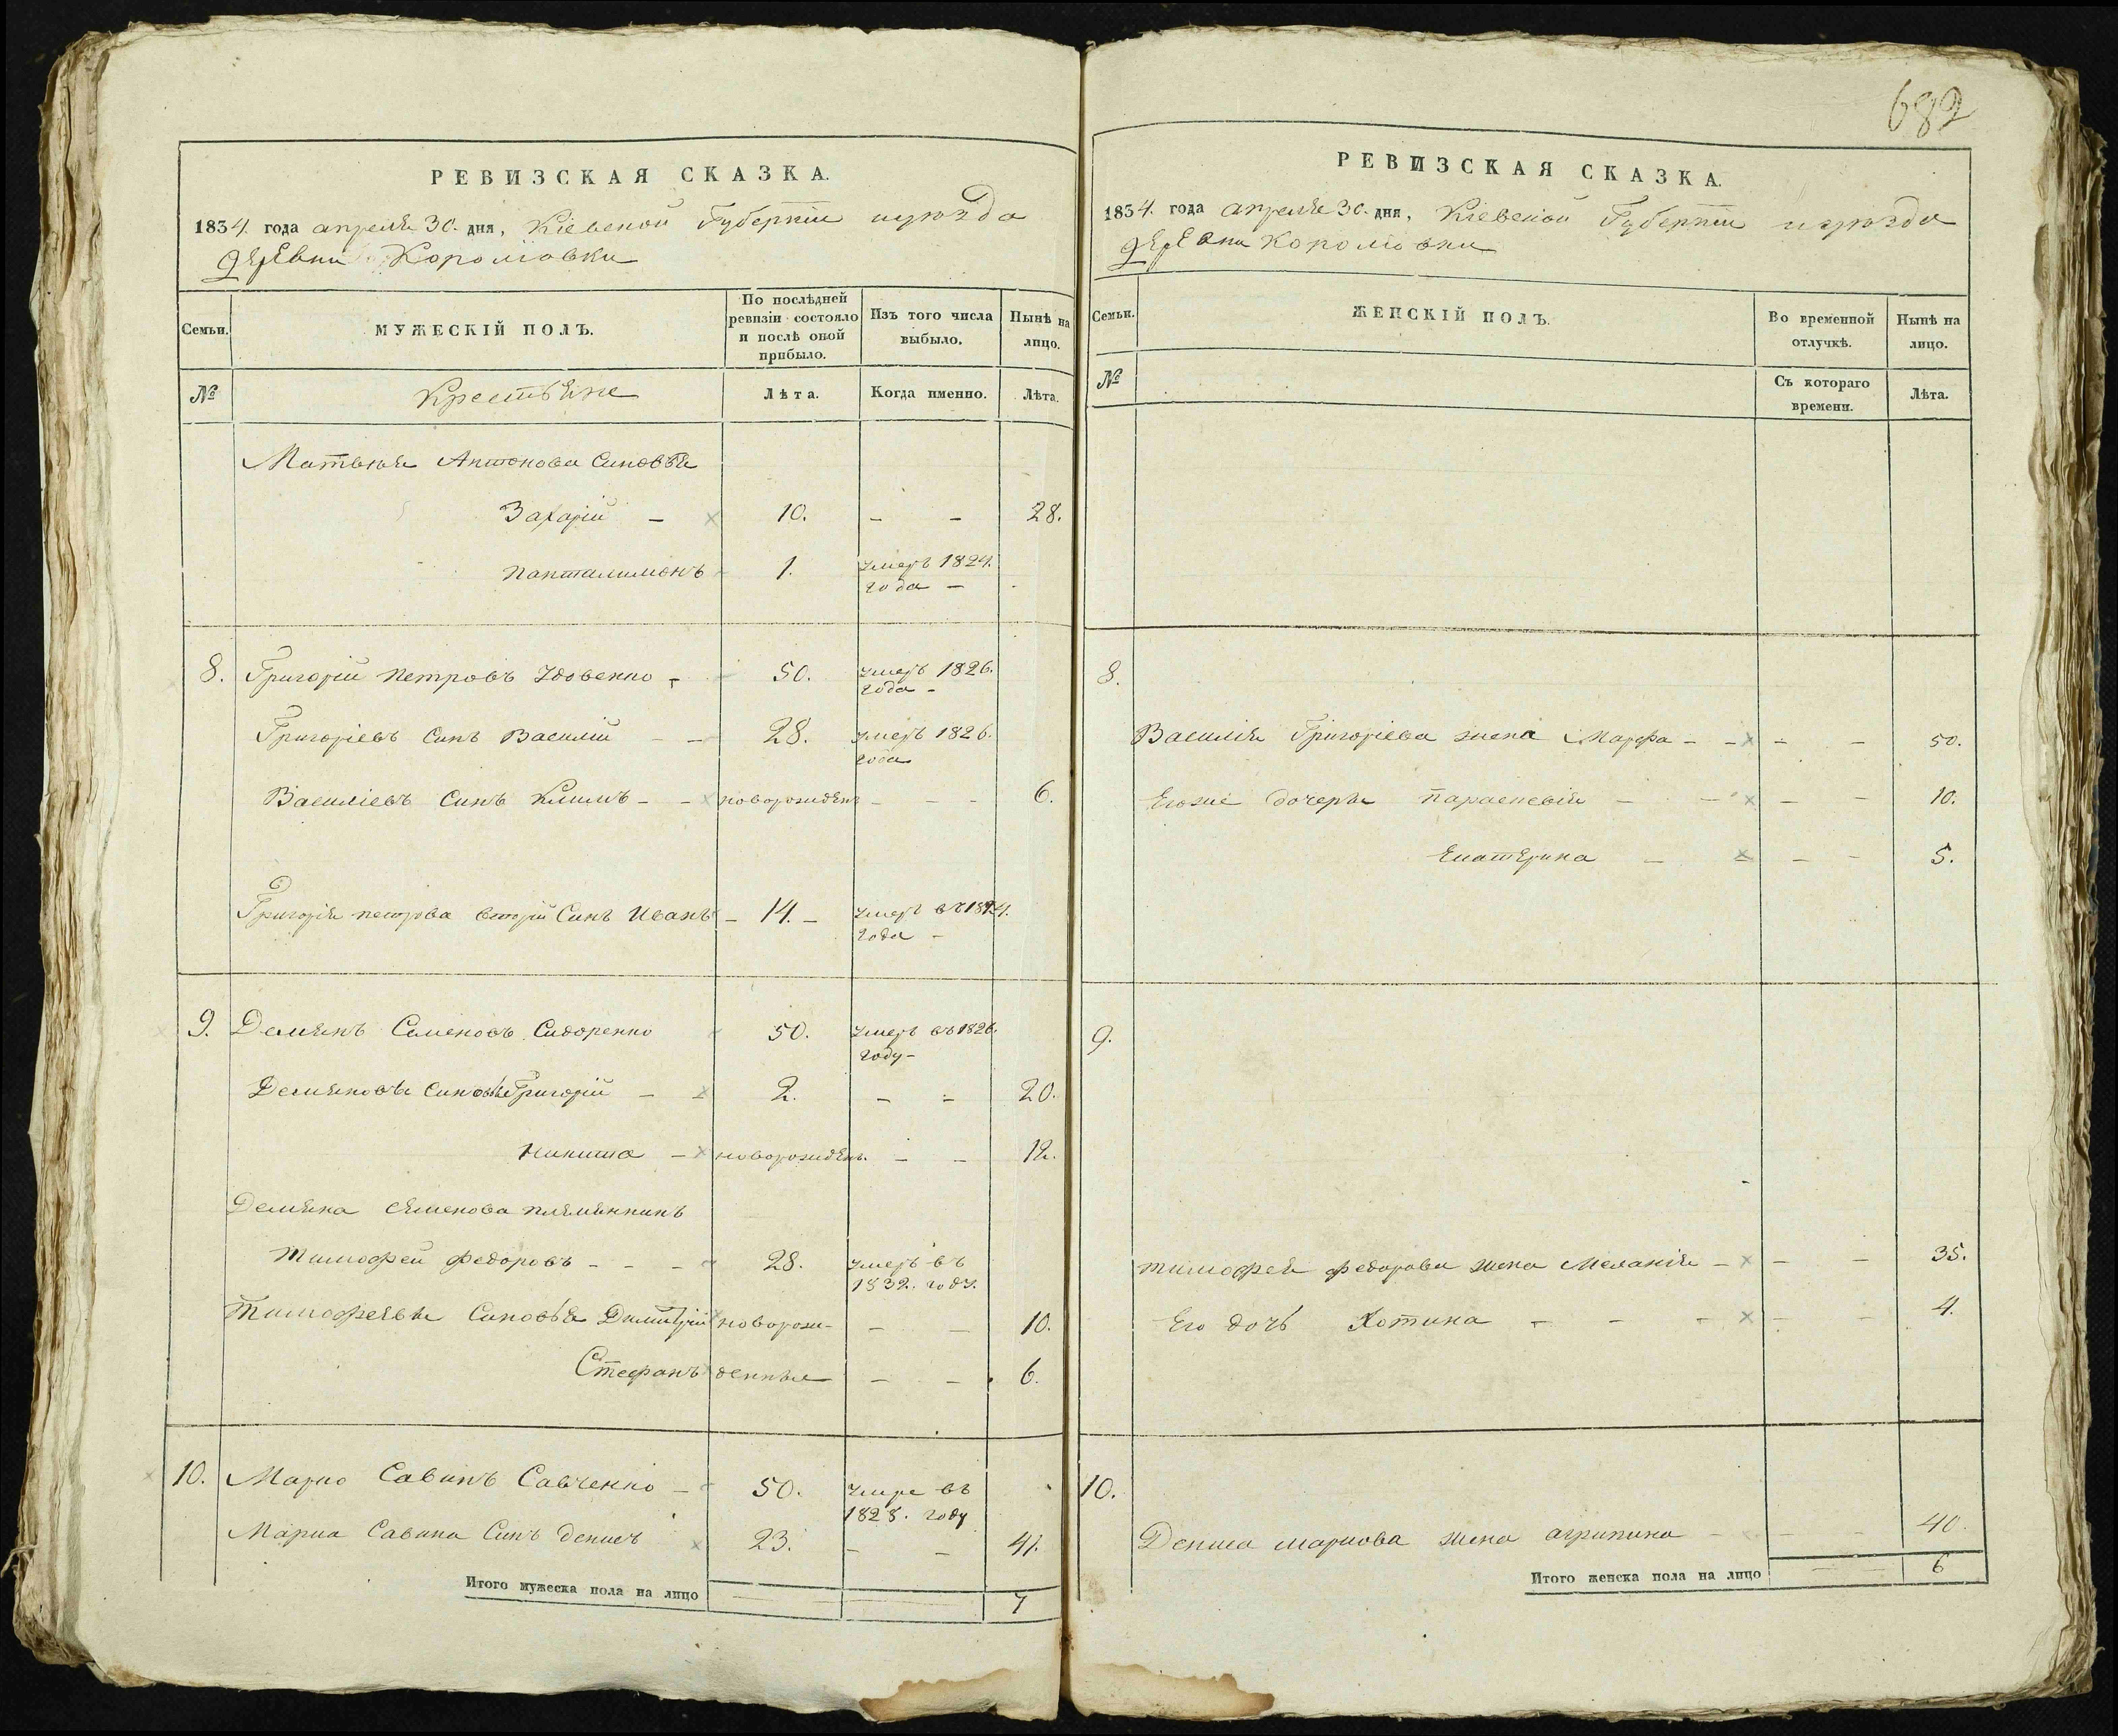 682
РЕВИЗСКАЯ СКАЗКА.
1834. года апреля 30. дня, Кіевской Губерніи иуезда
деревни Королювки
Семьи.
МУЖЕСКІЙ ПОЛЪ.
По послѣдней ревизіи состояло и послѣ оной прибыло.
Изъ того числа выбыло.
Нынѣ на лицо.
№
Крестьяне
Лѣта.
Когда именно.
Лѣта.
Матвѣя Антонова Синовья
Захарій — 10. — — 28.
Панталимонъ 1. умеръ 1824.
года —
8. Григорій Петровъ Удовенко 50. умеръ 1826.
года —
Григоріевъ Синъ Василій — — 28. умеръ 1826.
года
Василіевъ Синъ Климъ — — новорожденъ — — — 6.
Григорія петрова вторій Синъ Иванъ — 14. — умеръ въ
года —
9. Демянъ Семеновъ Сидоренко 50. умеръ въ 1826.
году —
Демяновы Синовья Григорій — — 2. — — 20.
Никита — новорожденъ. — — 12.
Демяна Семенова племянникъ
Тимофей Федоровъ — — — 28. умеръ въ
1832. году.
Тимофеевы Синовья Димитрій новорож- — — 10.
Стефанъ денные — — 6.
10. Марко Савинъ Савченко — 50. умре въ
1828. году
Марка Савина Синъ Денисъ 23. — — 41.
Итого мужеска пола на лицо 7
РЕВИЗСКАЯ СКАЗКА.
1834. года апреля 30. дня, Кіевской Губерніи иуезда
деревни Королювки
Семьи.
ЖЕНСКІЙ ПОЛЪ.
Во временной отлучкѣ.
Нынѣ на лицо.
№
Съ котораго времени.
Лѣта.
8.
Василія Григоріева жена Марфа — — — — 50.
Егоже дочеры Параскевія — — — — 10.
Екатерина — — — — 5.
9.
Тимофея Федорова жена Меланія — — — 35.
Его дочь Хотина — — — — — 4.
10.
Дениса Маркова жена агрипина — — — 40.
Итого женска пола на лицо 6